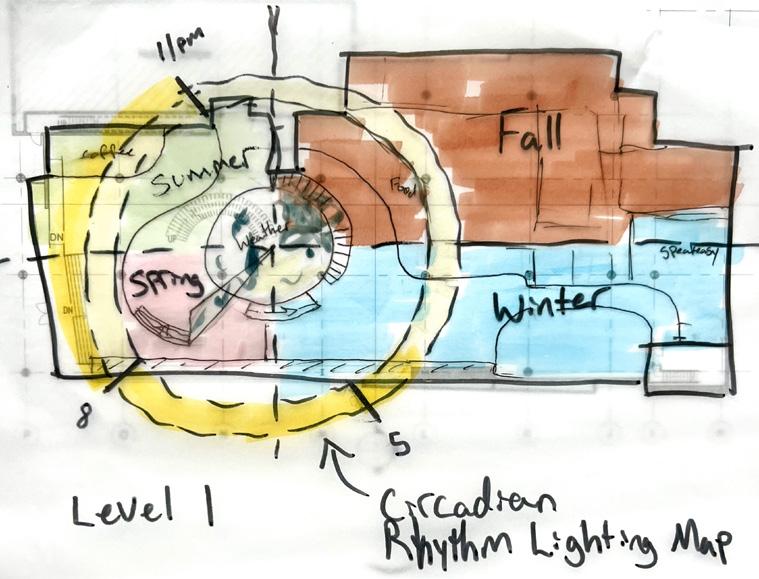 11pm
Fall
coffee
Summer
Food
Weather
DN
UP
Speakeasy
Spring
Winter
DN
8
5
Level 1
Circadian
Rhythm Lighting Map